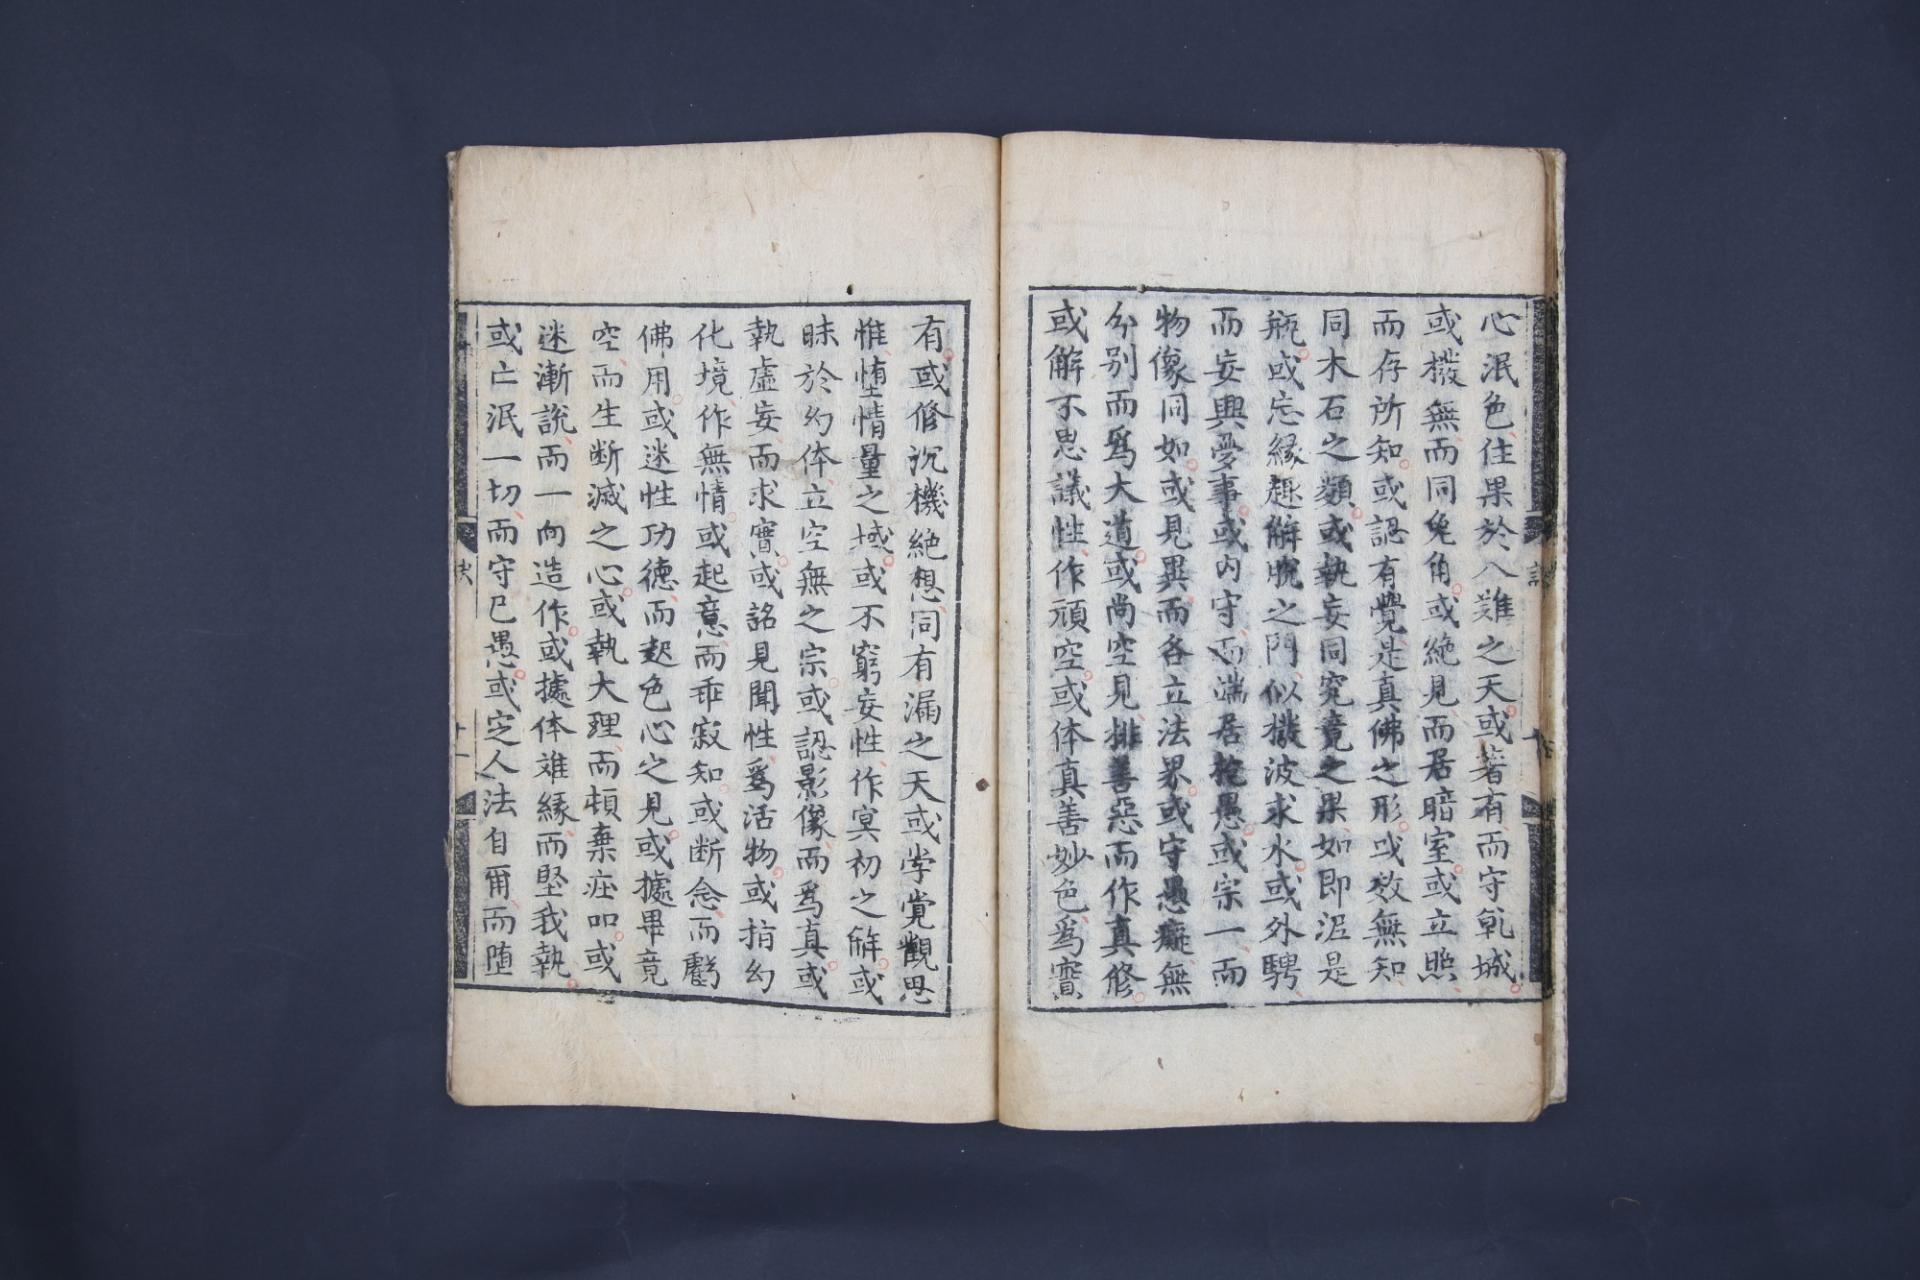 心泯色住果於八難之天或著有而守乹城
或撥無而同兔角或絶見而居暗室或立照
而存所知或認有覺是真佛之形或效無知
同木石之類或執妄同究竟之果如即泥是
瓶或忘縁趣解脫之門似撥波求水或外騁
而妄興夢事或内守而端居抱愚或宗一而
物像同如或見異而各立法界或守愚癡無
分别而爲大道或尚空見排善惡而作真修
或解不思議性作頑空或体真善妙色爲實
有或修沉機絶想同有漏之天或学覚觀思
惟堕情量之域或不窮妄性作㝠初之解或
昧於幻体立空無之宗或認影像而爲真或
執虚妄而求實或詺見聞性爲活物或指幻
化境作無情或起意而乖寂知或断念而虧
佛用或迷性功德而起色心之見或據畢竟
空而生断滅之心或執大理而頓棄荘㘴或
迷漸說而一向造作或據体雉緣而堅我執
或亡泯一切而守己愚或定人法自爾而堕
决
十一